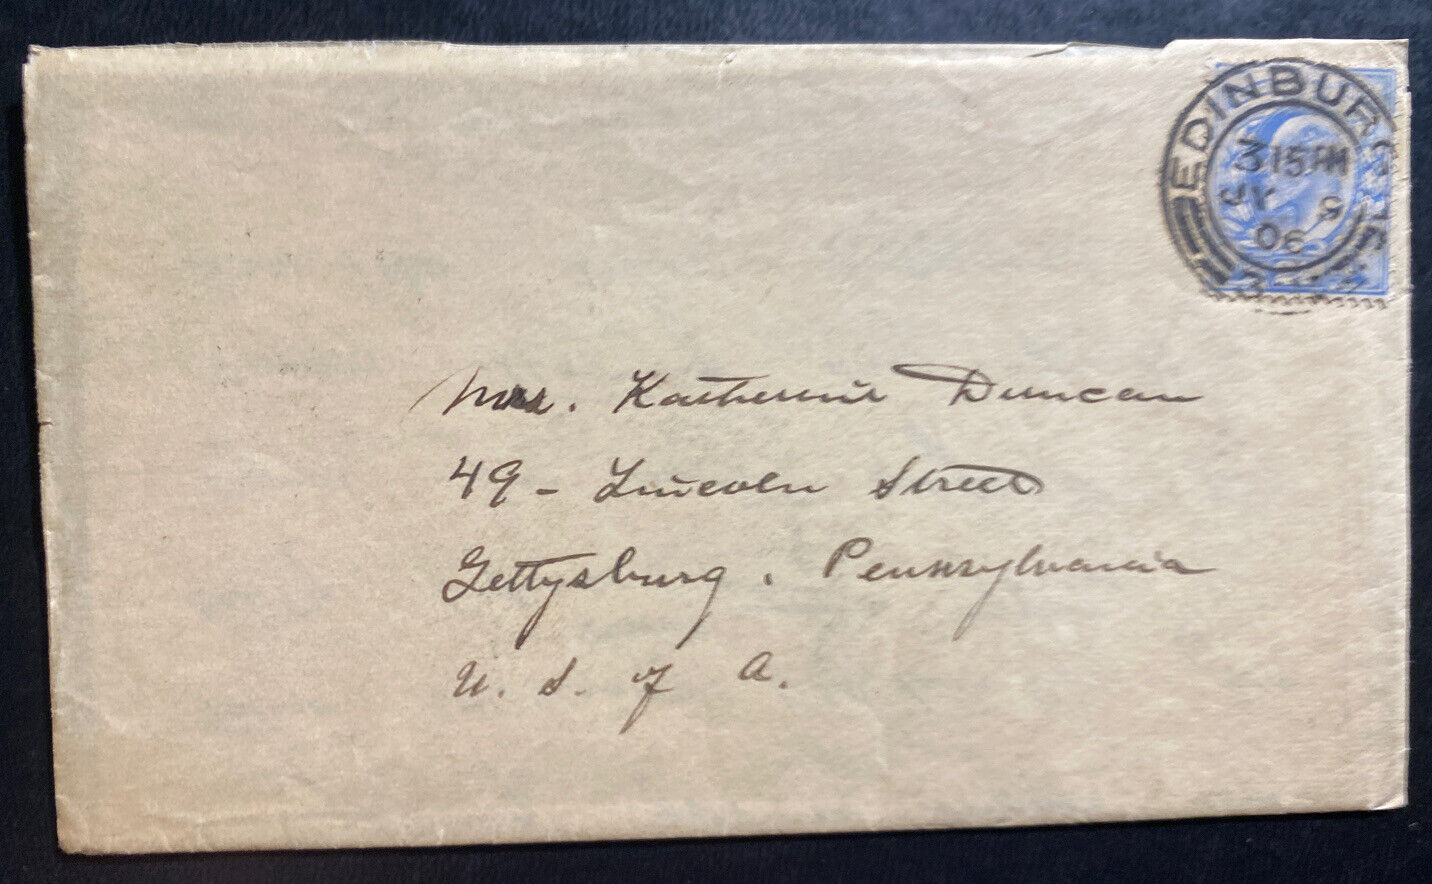 EDINBURGH
3 15 PM
JY 9
06
3
Mrs. Katherine Duncan
49 - Lincoln Street
Gettysburg, Pennsylvania
U. S. of A.